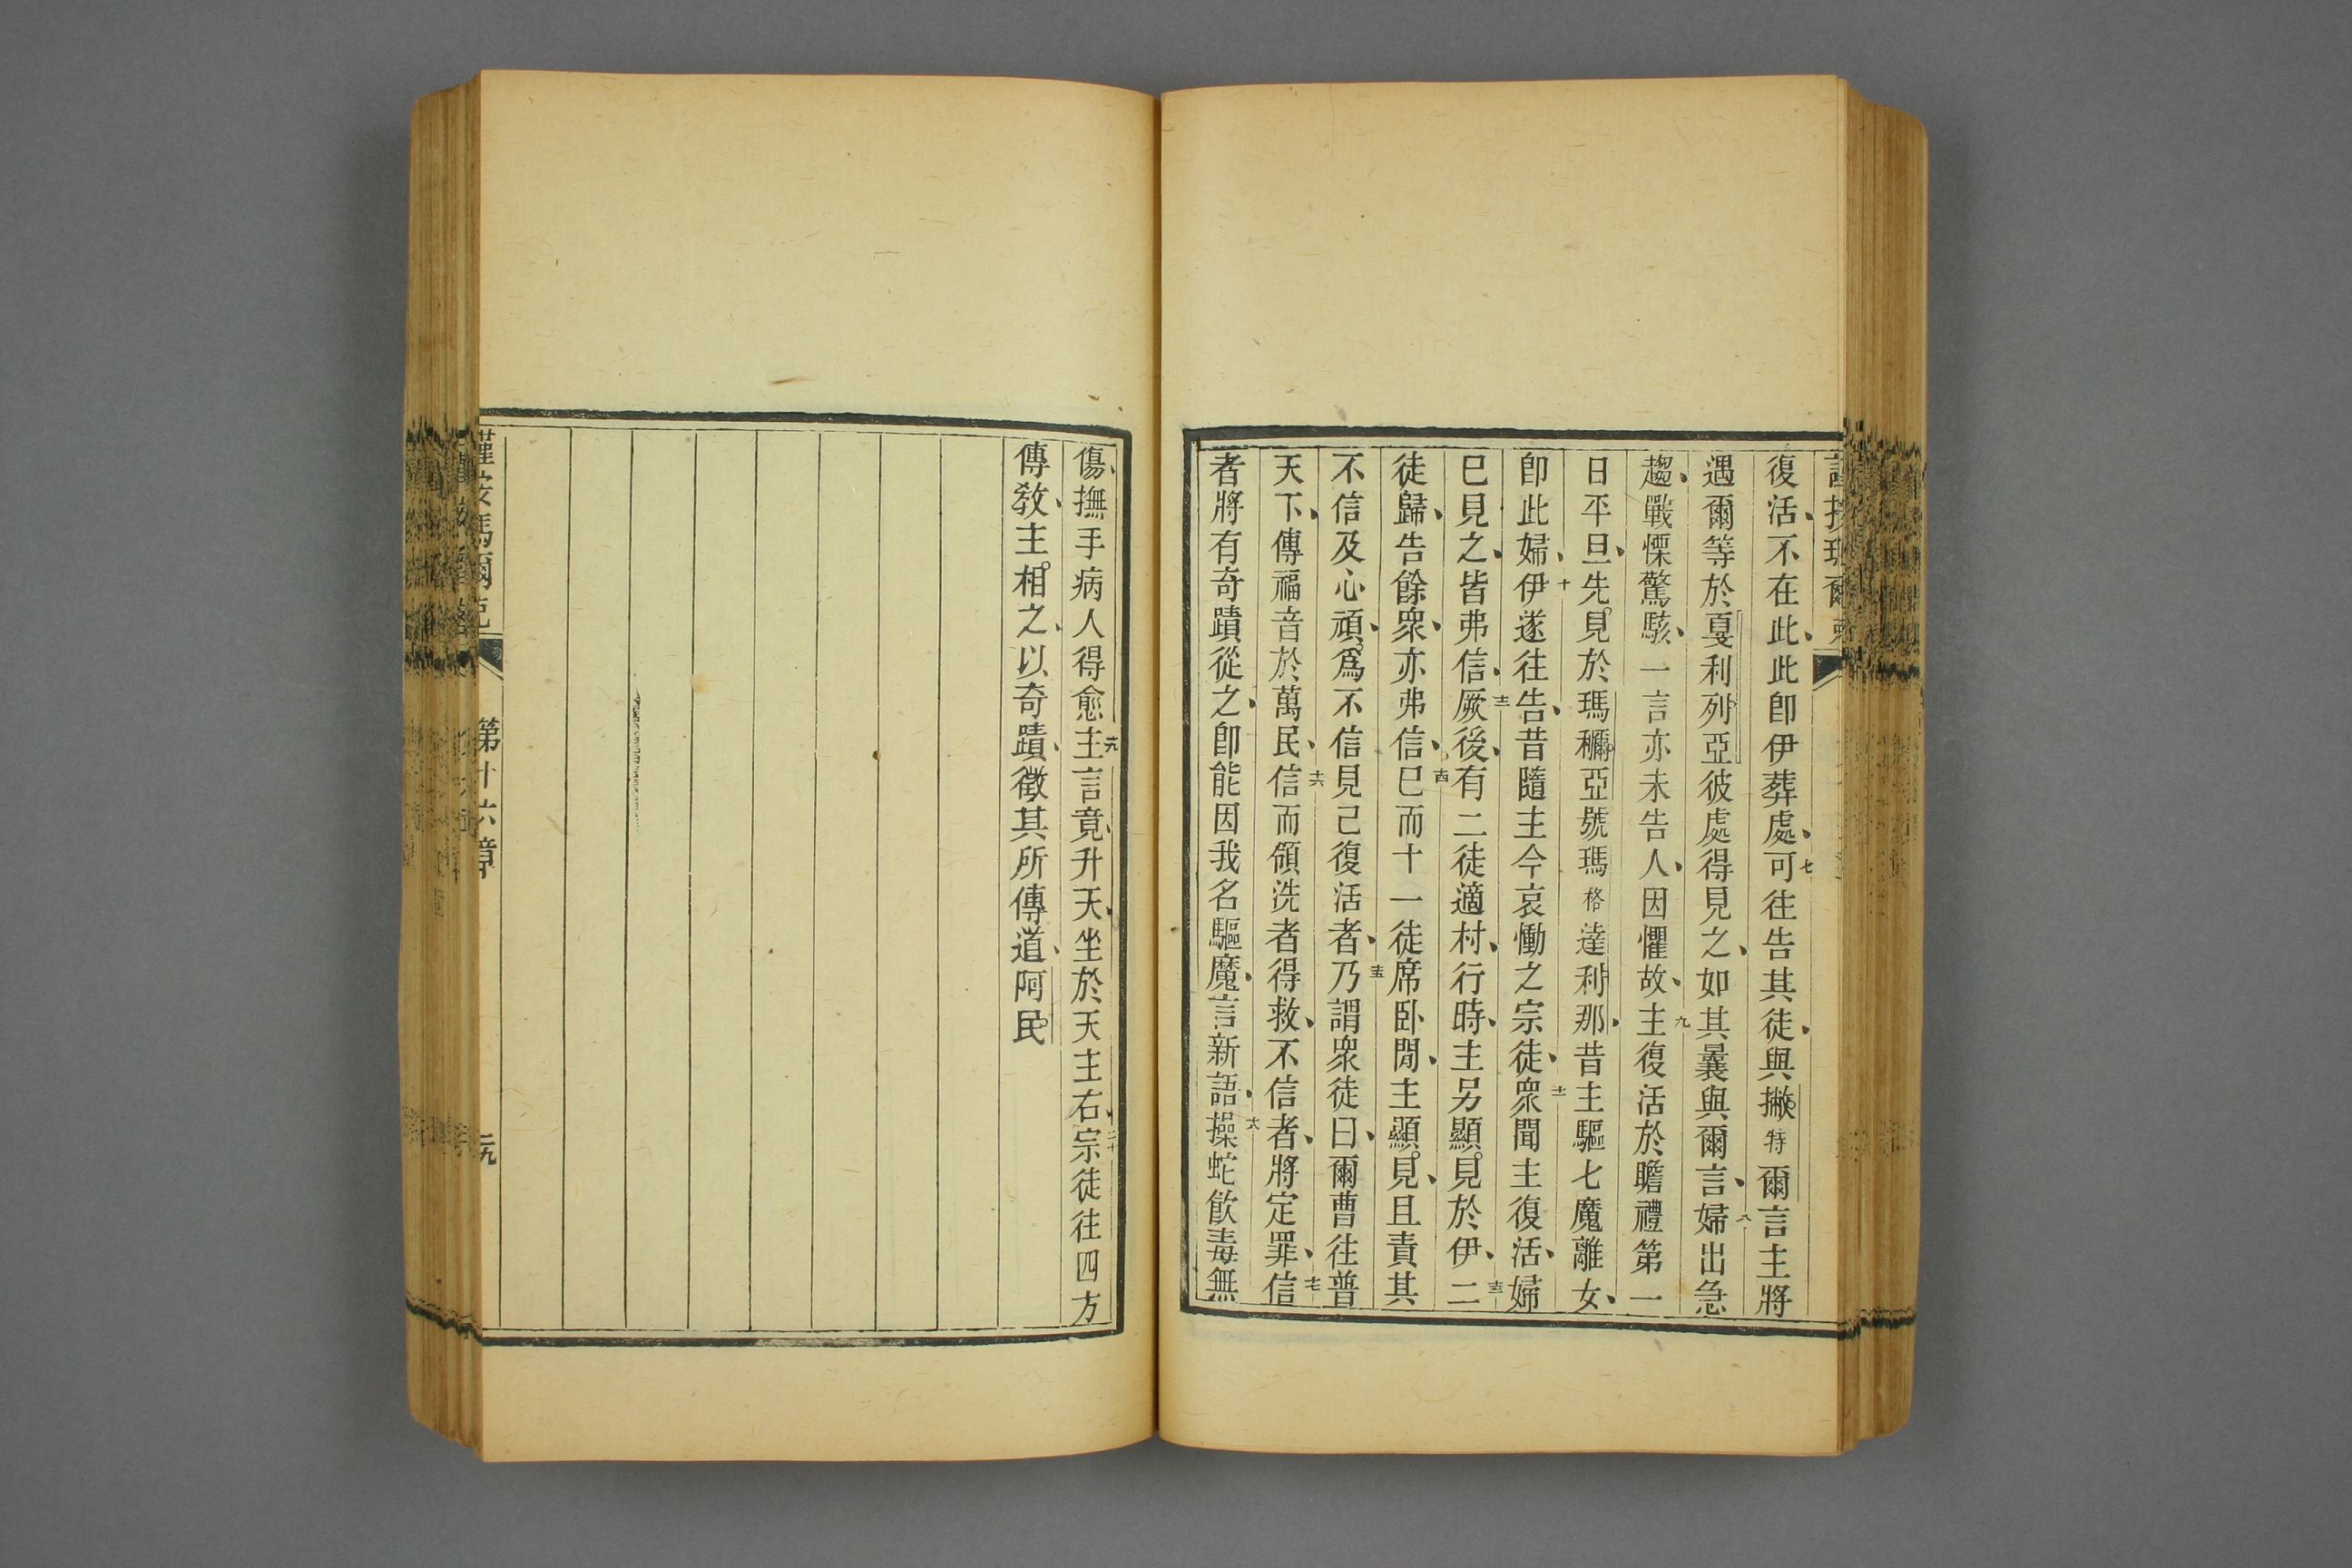 復活、不在此、此卽伊葬處、七可往告其徒、與撇特爾言、主將
遇爾等於戛利列亞、彼處得見之、如其曩與爾言、八婦出急
趨、戰慄驚駭、一言亦未告人、因懼故、九主復活於瞻禮第一
日平旦、先見於瑪穪亞號瑪格達利那、昔主驅七魔離女、
卽此婦、十伊遂往告、昔隨主今哀慟之宗徒、十一衆聞主復活、婦
已見之、皆弗信、十二厥後、有二徒適村、行時、主另顯見於伊、十三二
徒歸、告餘衆、亦弗信、十四已而十一徒席臥閒、主顯見、且責其
不信及心頑、爲不信見己復活者、十五乃謂衆徒曰、爾曹往普
天下、傳福音於萬民、十六信而領洗者得救、不信者、將定罪、十七信
者將有奇蹟從之、卽能因我名驅魔、言新語、十八操蛇飮毒無
傷、撫手病人得愈、十九主言竟、升天、坐於天主右、二十宗徒往四方
傳敎、主相之、以奇蹟、徵其所傳道、阿民
第十六章